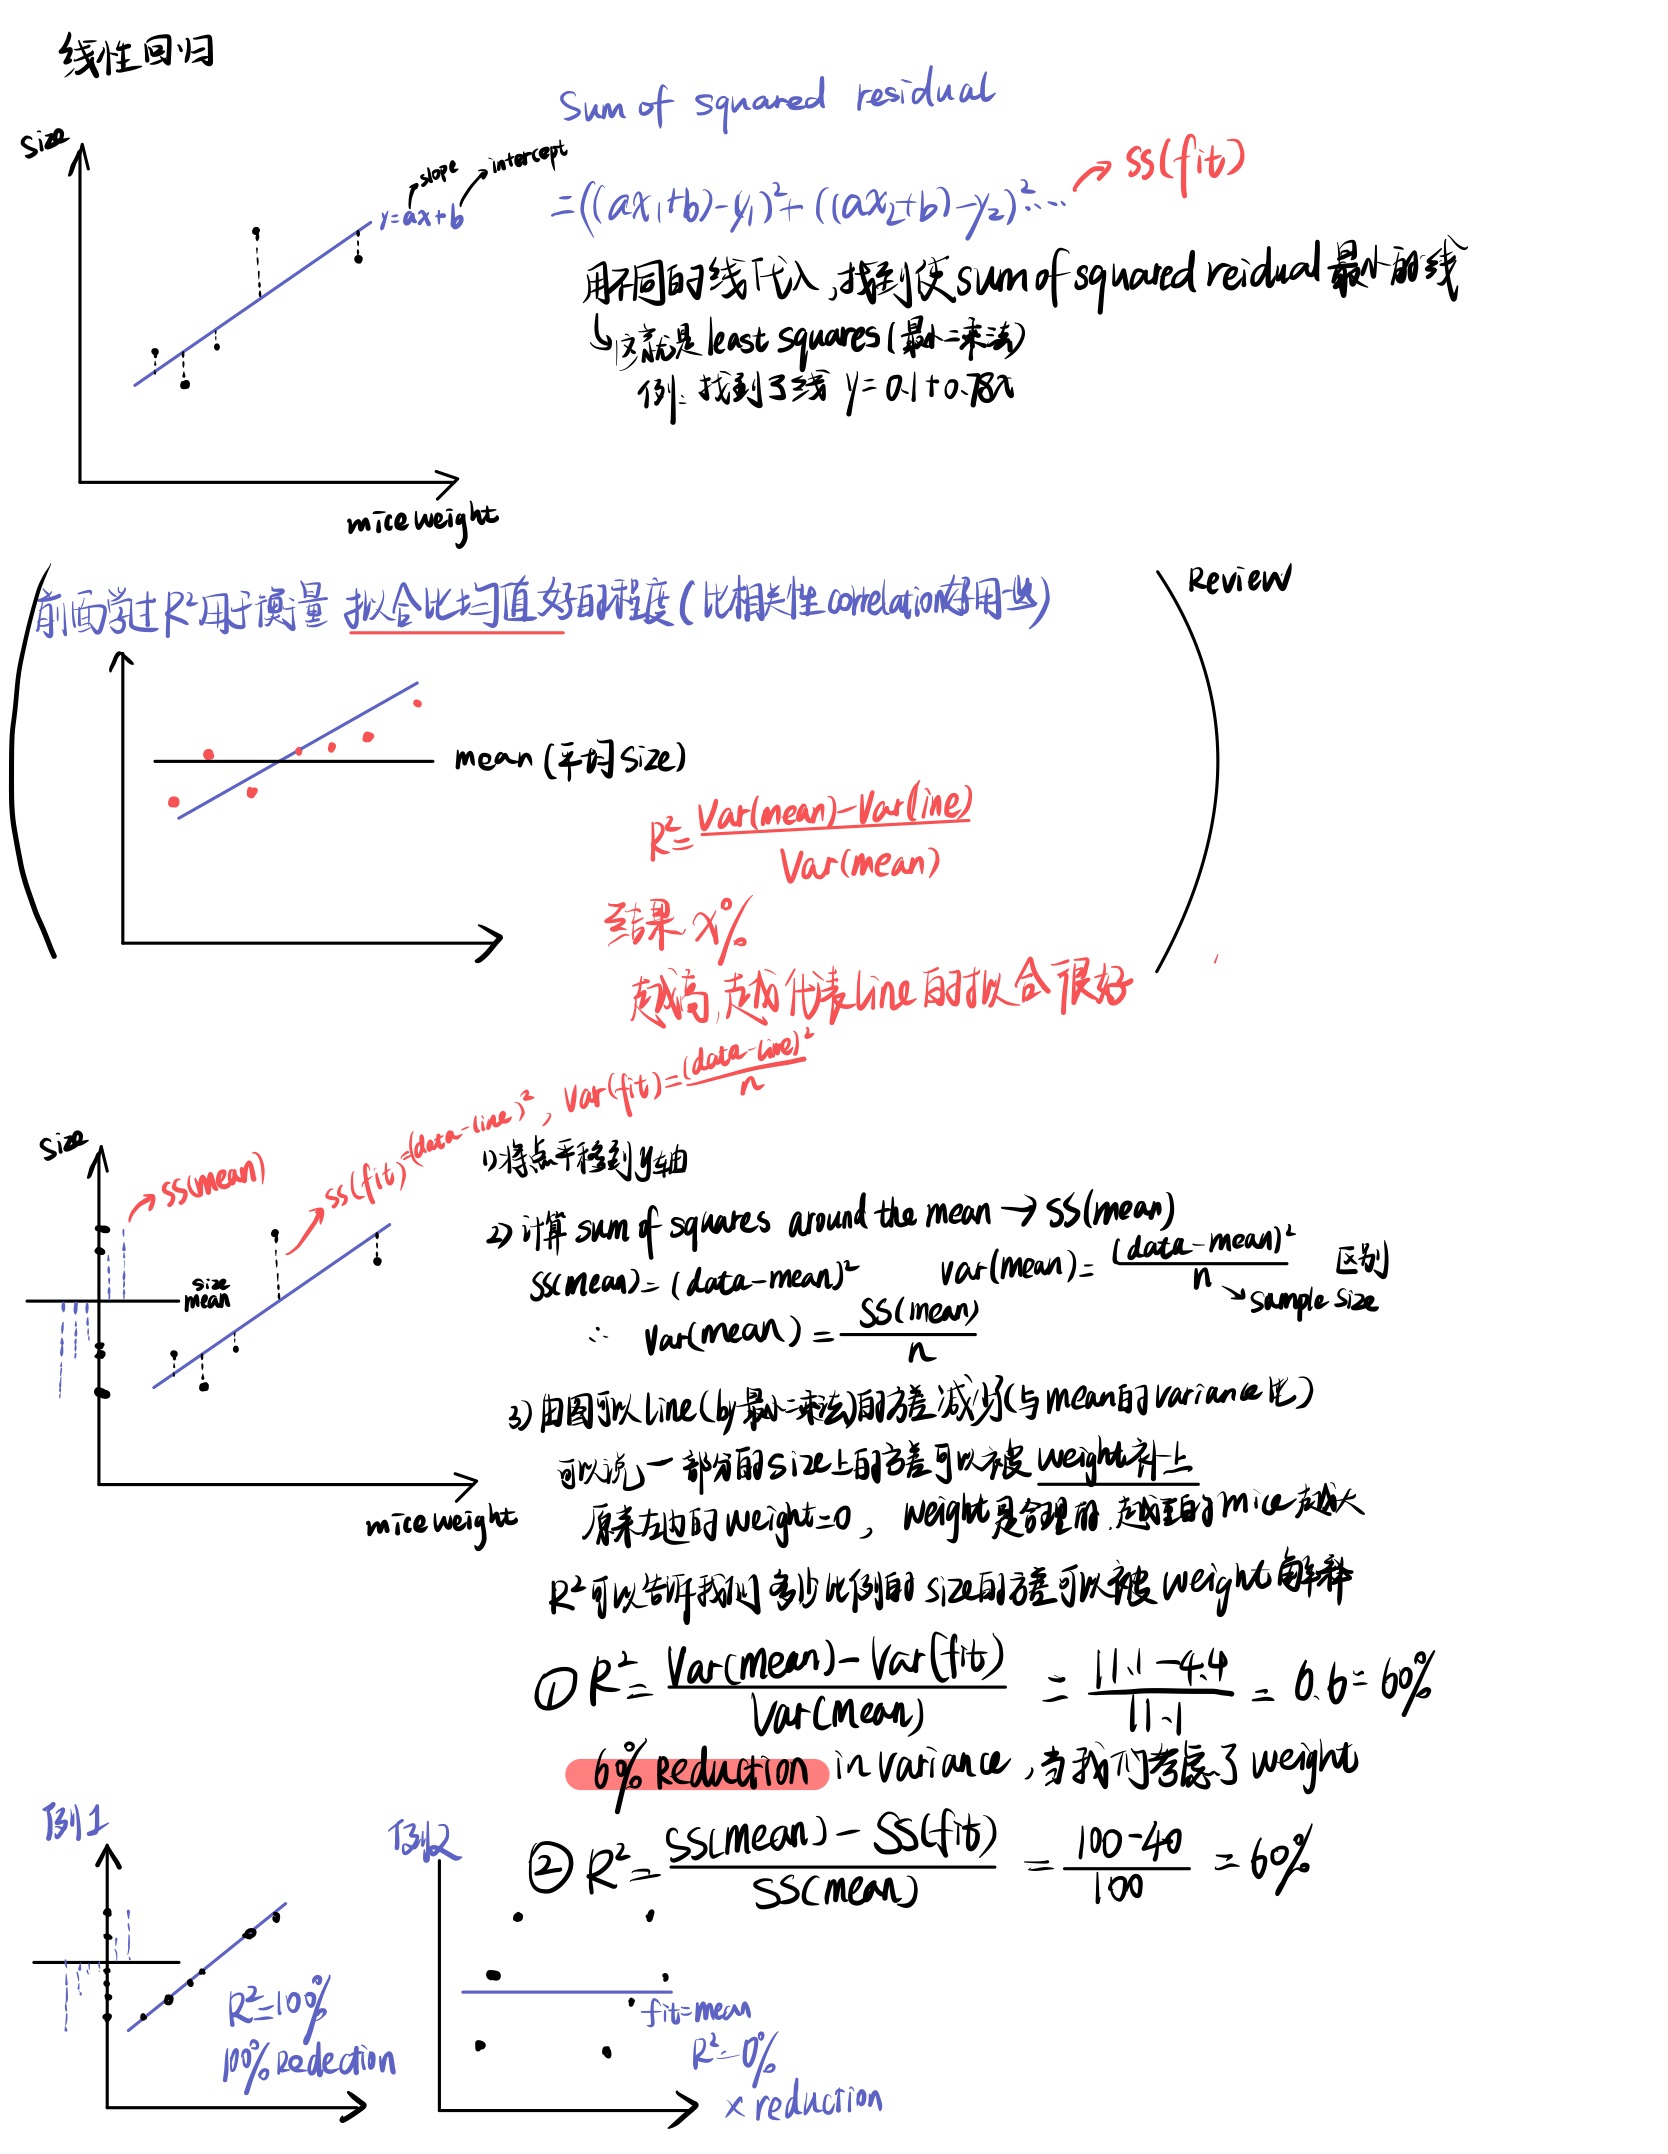 线性回归
Sum of squared residual
size
slope
intercept
y=ax+b
=((ax₁+b)-y₁)²+((ax₂+b)-y₂)²....
SS(fit)
用不同的线代入,找到使sum of squared reidual最小的线
这就是least squares(最小二乘法)
例:找到了线 y=0.1+0.78x
mice weight
前面学过R²用于衡量 拟合比均值好的程度(比相关性correlation好用些)
Review
mean (平均size)
R²=Var(mean)-Var(line)/Var(mean)
结果 x%
越高,越代表line的拟合很好
size
SS(mean)
SS(fit)=(data-line)², Var(fit)=(data-line)²/n
1)将点平移到y轴
2)计算sum of squares around the mean→SS(mean)
SS(mean)=(data-mean)² var(mean)=(data-mean)²/n 区别
sample size
∴ Var(mean)=SS(mean)/n
size mean
3)由图可以line(by最小二乘法)的方差减少(与mean的variance比)
可以说一部分的size上的方差可以被weight补上
原来左边的weight=0, weight是合理的,越重的mice越大
mice weight
R²可以告诉我们多少比例的size的方差可以被weight解释
① R²=Var(mean)-Var(fit)/Var(mean) =11.1-4.4/11.1=0.6=60%
60% Reduction in variance,当我们考虑了weight
② R²=SS(mean)-SS(fit)/SS(mean) =100-40/100=60%
例1
R²=100%
100% Redection
例2
fit=mean
R²=0%
× reduction